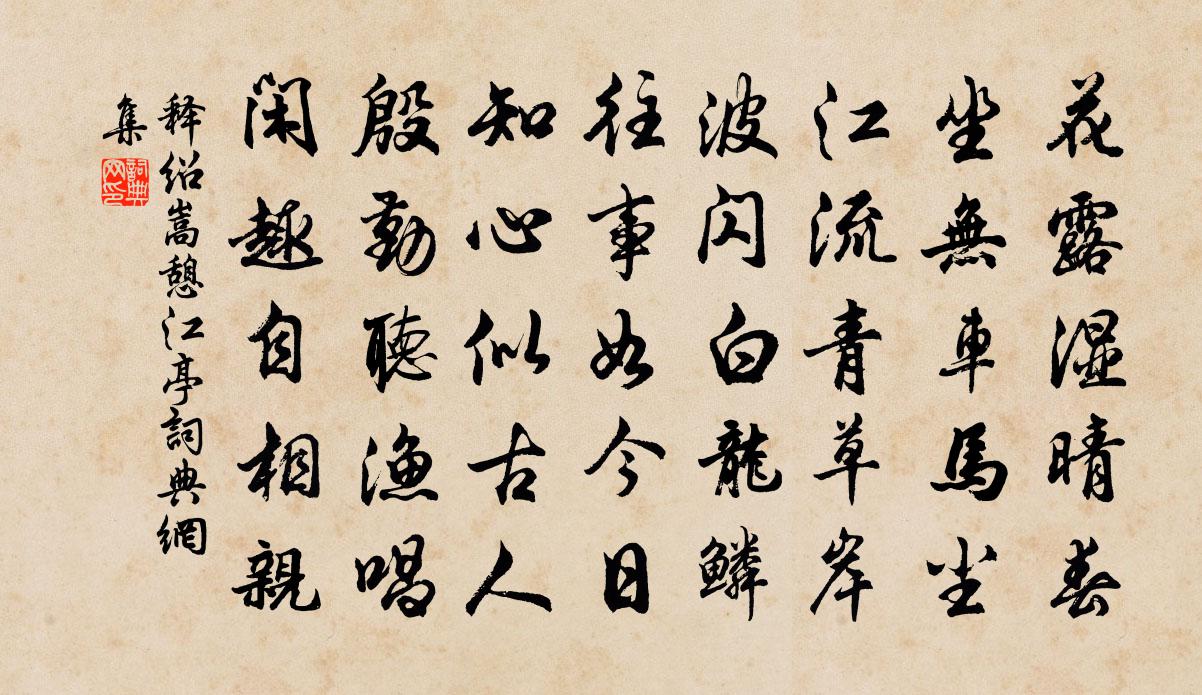 花露濕晴春
坐無車馬尘
江流青草岸
波閃白龍鱗
往事如今日
知心似古人
殷勤聽漁唱
閑趣自相親
释绍嵩憩江亭詞典網
集
詞典
网印